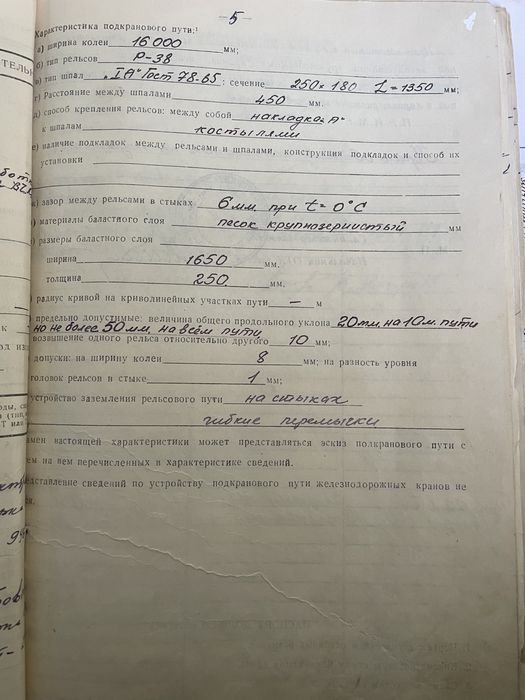 —5—
Характеристика подкранового пути:¹
а) ширина колеи 16 000 мм;
б) тип рельсов Р-38
в) тип шпал „IА" Гост 78-65; сечение 250×180 L=1350 мм;
г) Расстояние между шпалами 450 мм.
д) способ крепления рельсов: между собой накладко "А"
к шпалам костылями
е) наличие подкладок между рельсами и шпалами, конструкция подкладок и способ их
установки
ж) зазор между рельсами в стыках 6 мм при t=0°С
) материалы баластного слоя песок крупнозернистый мм
) размеры баластного слоя
ширина 1650 мм.
толщина 250 мм.
) радиус кривой на криволинейных участках пути — м
) предельно допустимые: величина общего продольного уклона 20 мм. на 10 м. пути
но не более 50 мм. на всём пути
возвышение одного рельса относительно другого 10 мм;
допуски: на ширину колеи 8 мм; на разность уровня
головок рельсов в стыке 1 мм;
устройство заземления рельсового пути на стыках
гибкие перемыски
амен настоящей характеристики может представляться эскиз подкранового пути с
ем на нем перечисленных в характеристике сведений.
едставление сведений по устройству подкранового пути железнодорожных кранов не